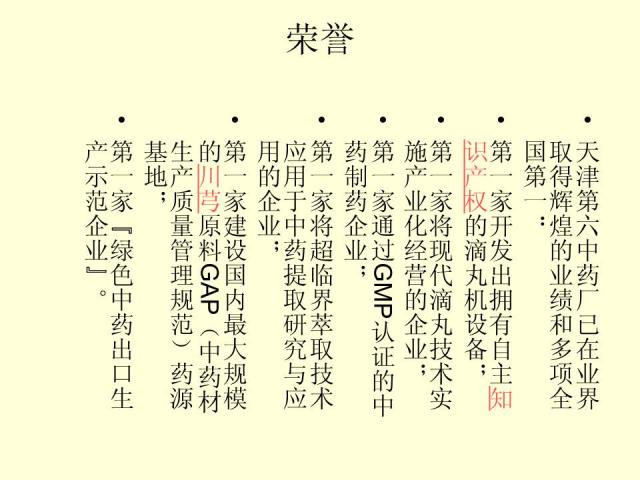 荣誉
• 天津第六中药厂已在业界
取得辉煌的业绩和多项全
国第一：
• 第一家开发出拥有自主知
识产权的滴丸机设备；
• 第一家将现代滴丸技术实
施产业化经营的企业；
• 第一家通过GMP认证的中
药制药企业；
• 第一家将超临界萃取技术
应用于中药提取研究与应
用的企业；
• 第一家建设国内最大规模
的川芎原料GAP（中药材
生产质量管理规范）药源
基地；
• 第一家『绿色中药出口生
产示范企业』。